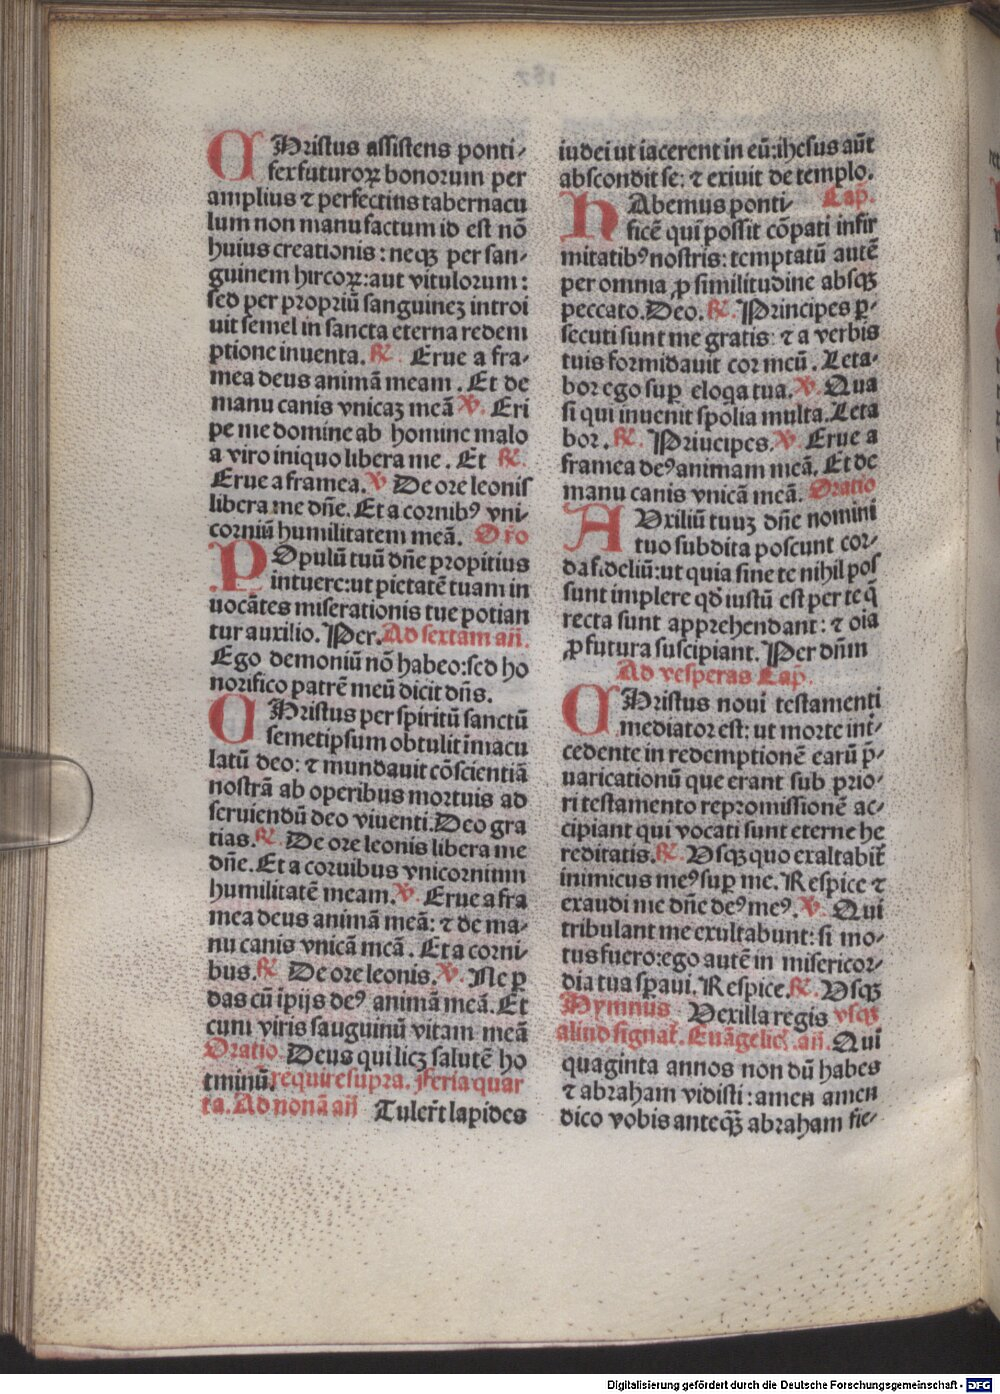 CHristus assistens ponti⸗
fex futuroꝝ bonorum per
amplius ⁊ perfectius tabernacu
lum non manufactum id est nõ
huius creationis : neqꝫ per san⸗
guinem hircoꝝ: aut vitulorum :
sed per propriũ sanguineꝫ introi
uit semel in sancta eterna redem
ptione inuenta. ℟. Erue a fra⸗
mea deus animã meam . Et de
manu canis vnicaꝫ meã ℣. Eri
pe me domine ab homine malo
a viro iniquo libera me . Et ℟.
Erue a framea. ℣ De ore leonis
libera me dñe. Et a cornibꝰ vni⸗
corniũ humilitatem meã. Or̃o
POpulũ tuũ dñe propitius
intuere: ut pietatẽ tuam in
uocãtes miserationis tue potian
tur auxilio. Per. Ad sextam añ.
Ego demoniũ nõ habeo: sed ho
norifico patrẽ meũ dicit dñs.
CHristus per spiritũ sanctũ
semetipsum obtulit ĩmacu
latũ deo: ⁊ mundauit cõscientiã
nostrã ab operibus mortuis ad
seruiendũ deo viuenti. Deo gra
tias. ℟. De ore leonis libera me
dñe. Et a coruibus vnicornium
humilitatẽ meam. ℣. Erue a fra
mea deus animã meã: ⁊ de ma⸗
nu canis vnicã meã . Et a corni⸗
bus. ℟. De ore leonis. ℣. Ne ꝑ
das cũ ipijs deꝰ animã meã. Et
cum viris sauguinũ vitam meã
Oratio. Deus qui licꝫ salutẽ ho
tminũ. require supra. Feria quar
ta. Ad nonã añ Tuler̃t lapides
iudei ut iacerent in eũ: ihesus aũt
abscondit se: ⁊ exiuit de templo.
HAbemus ponti⸗ Cap̃.
ficẽ qui possit cõpati infir
mitatibꝰ nostris: temptatũ autẽ
per omnia ꝓ similitudine absqꝫ
peccato. Deo. ℟. Principes ꝑ⸗
secuti sunt me gratis: ⁊ a verbis
tuis formidauit cor meũ . Leta⸗
bor ego suꝑ eloqa tua. ℣. Qua
si qui inuenit spolia multa. Leta
bor . ℟. Priucipes. ℣. Erue a
framea deꝰ animam meã. Et de
manu canis vnicã meã. Oratio
AVxiliũ tuuꝫ dñe nomini
tuo subdita poscunt cor⸗
da fideliũ: ut quia sine te nihil pos
sunt implere qđ iustũ est per te q̃
recta sunt apprehendant: ⁊ oĩa
ꝓfutura suscipiant. Per dñm
Ad vesperas Cap̃.
CHristus noui testamenti
mediator est: ut morte int̃⸗
cedente in redemptionẽ earũ p̃⸗
uaricationũ que erant sub prio⸗
ri testamento repromissionẽ ac⸗
cipiant qui vocati sunt eterne he
reditatis. ℟. Vsqꝫ quo exaltabit̃
inimicus meꝰ suꝑ me. Respice ⁊
exaudi me dñe deꝰ meꝰ. ℣. Qui
tribulant me exultabunt: si mo⸗
tus fuero: ego autẽ in misericor⸗
dia tua sꝑaui. Respice. ℟. Vsqꝫ
Hymnus Vexilla regis vsqꝫ
aliud signat̃. Euãgelic̃. añ. Qui
quaginta annos non dũ habes
⁊ abraham vidisti : amen amen
dico vobis anteqꝫ̃ abraham fie⸗
Digitalisierung gefördert durch die Deutsche Forschungsgemeinschaft - DFG